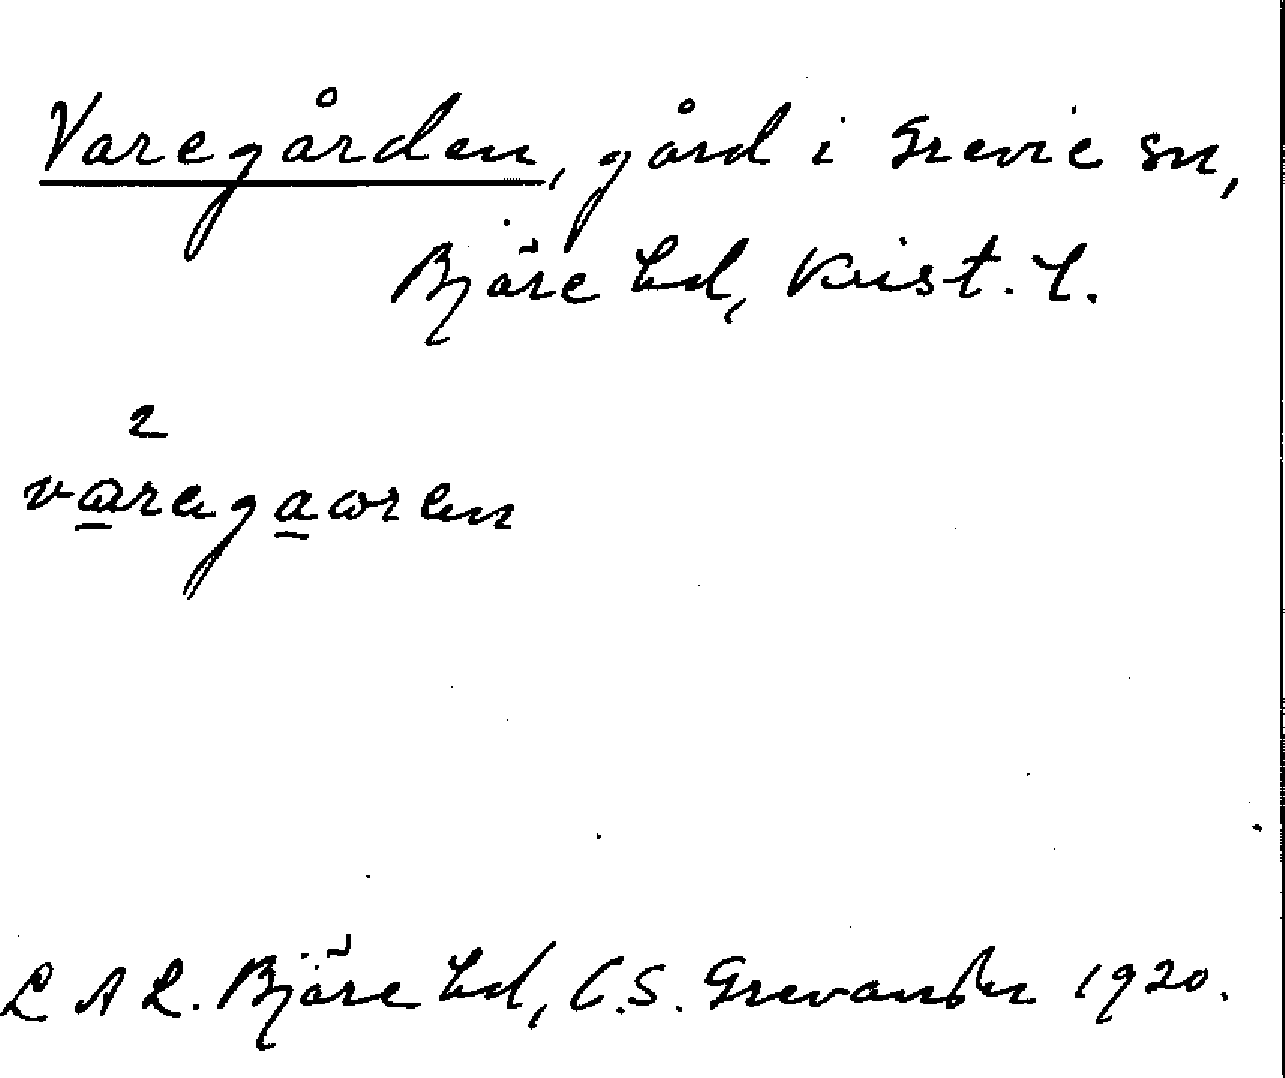 Varegården, gård i Grevie sn,
Bjäre hd, Krist. l.
2
varegaoren
L A L. Bjäre hd, C.S. Grevander 1920.